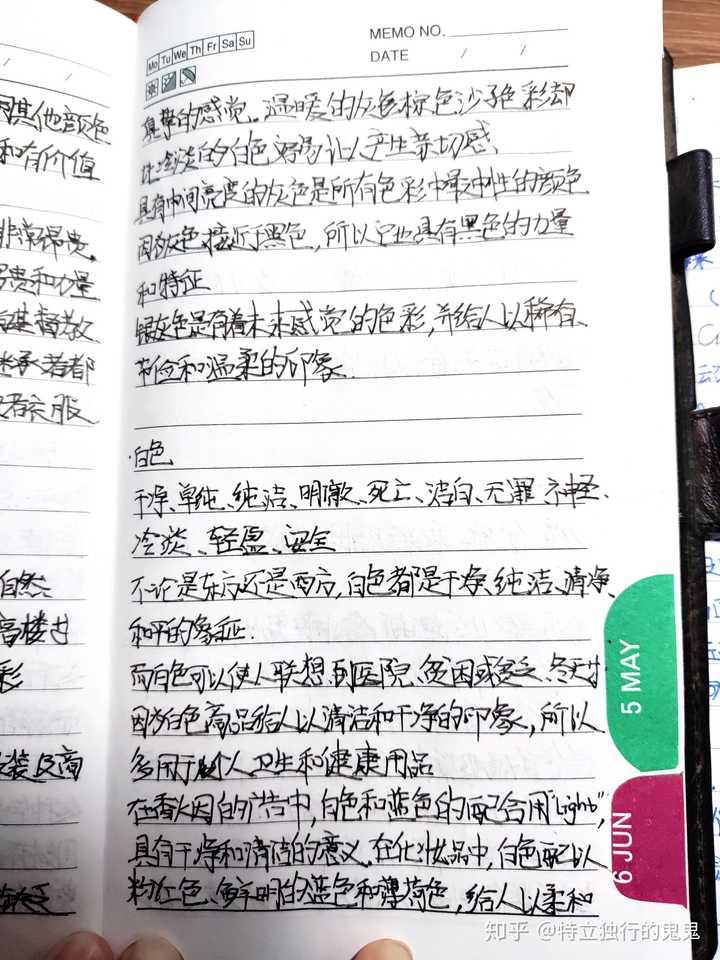 因其他颜色
和有价值
非常昂贵。
昂贵和力量
基督教
者都
衣服
自然
高楼
彩
装及商
缺乏
Mo Tu We Th Fr Sa Su
MEMO NO.
DATE / /
真挚的感觉。温暖的灰色棕色沙子色彩却
比冷淡的白色容易让人产生亲切感、
具有中间亮度的灰色是所有色彩中最中性的颜色
因为灰色接近于黑色,所以它也具有黑色的力量
和特征
银灰色是有着未来感觉的色彩,并给人以稀有、
节俭和温柔的印象.
·白色
干净、单纯、纯洁、明澈、死亡、洁白、无罪 神圣、
冷淡、轻盈、安全
不论是东方还是西方,白色都是干净、纯洁、清净、
和平的象征.
而白色可以使人联想到医院、贫困或缺乏、冬天
因为白色商品给人以清洁和干净的印象,所以
多用于个人卫生和健康用品
在香烟的广告中,白色和蓝色的配合用"Light",
具有干净和清洁的意义.在化妆品中,白色配以
粉红色、鲜明的蓝色和薄荷色,给人以柔和
5 MAY
6 JUN
知乎 @特立独行的鬼鬼